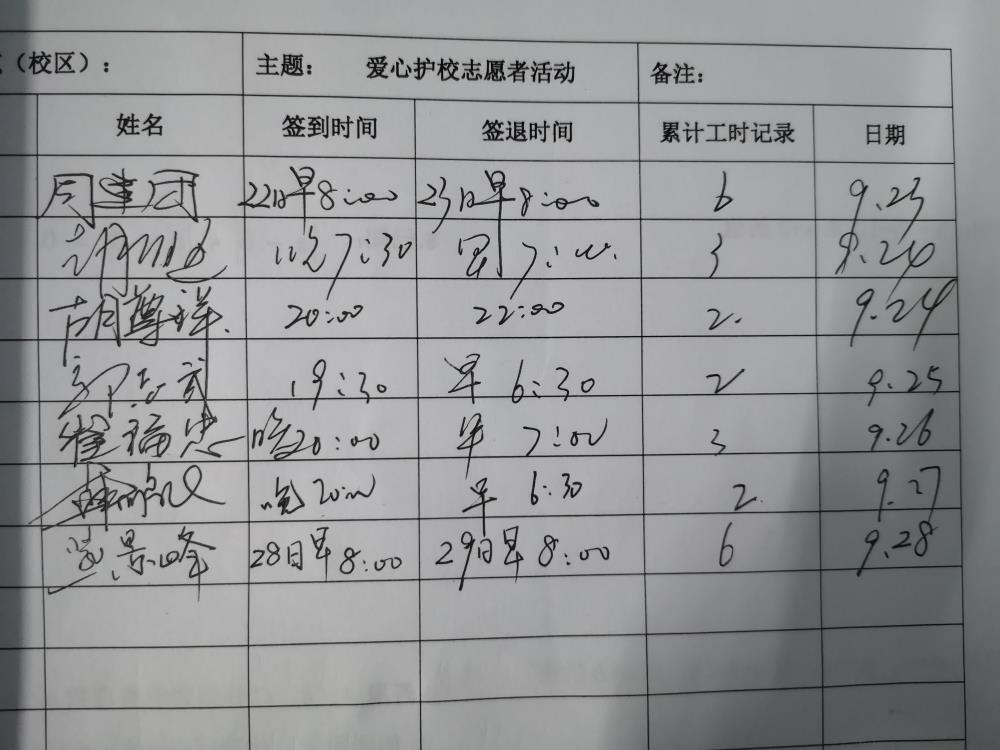 （校区）： 主题： 爱心护校志愿者活动 备注：
姓名 签到时间 签退时间 累计工时记录 日期
周建团 22日早8:00 23日早8:00 6 9.23
晚7:30 早7:00 3 9.24
胡尊祥 20:00 22:00 2 9.24
19:30 早6:30 2 9.25
崔福忠 晚20:00 早7:00 3 9.26
晚20:00 早6:30 2 9.27
景峰 28日早8:00 29日早8:00 6 9.28